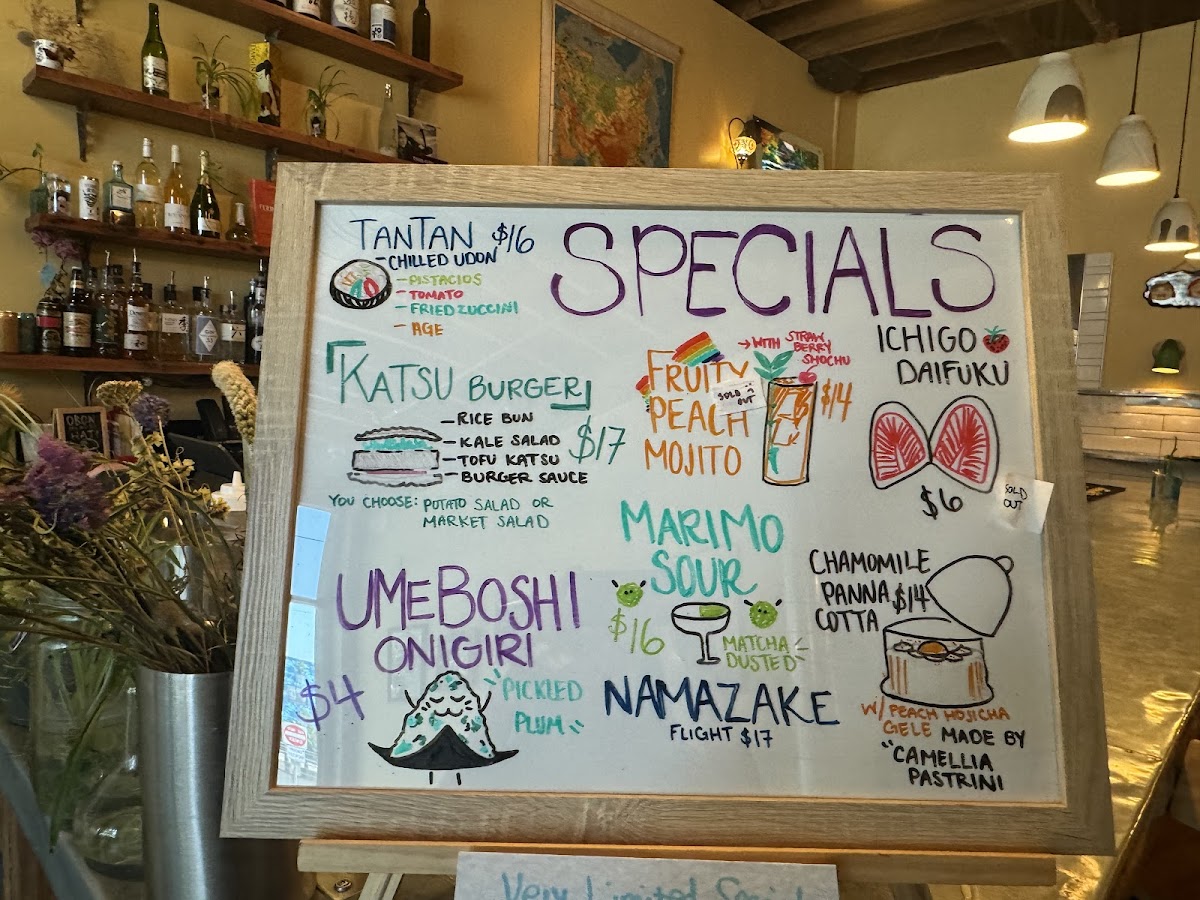 SPECIALS
TANTAN $16
-CHILLED UDON
-PISTACIOS
-TOMATO
-FRIED ZUCCINI
-AGE
「KATSU BURGER」
-RICE BUN
-KALE SALAD
-TOFU KATSU
-BURGER SAUCE
$17
YOU CHOOSE: POTATO SALAD OR
MARKET SALAD
UMEBOSHI
ONIGIRI
$4
"PICKLED
PLUM"
→WITH STRAW
BERRY
SHOCHU
FRUITY
PEACH
MOJITO
$14
SOLD
OUT
MARIMO
SOUR
$16
MATCHA
DUSTED
NAMAZAKE
FLIGHT $17
ICHIGO
DAIFUKU
$6
SOLD
OUT
CHAMOMILE
PANNA $14
COTTA
W/ PEACH HOJICHA
GELE MADE BY
"CAMELLIA
PASTRINI
Very Limited